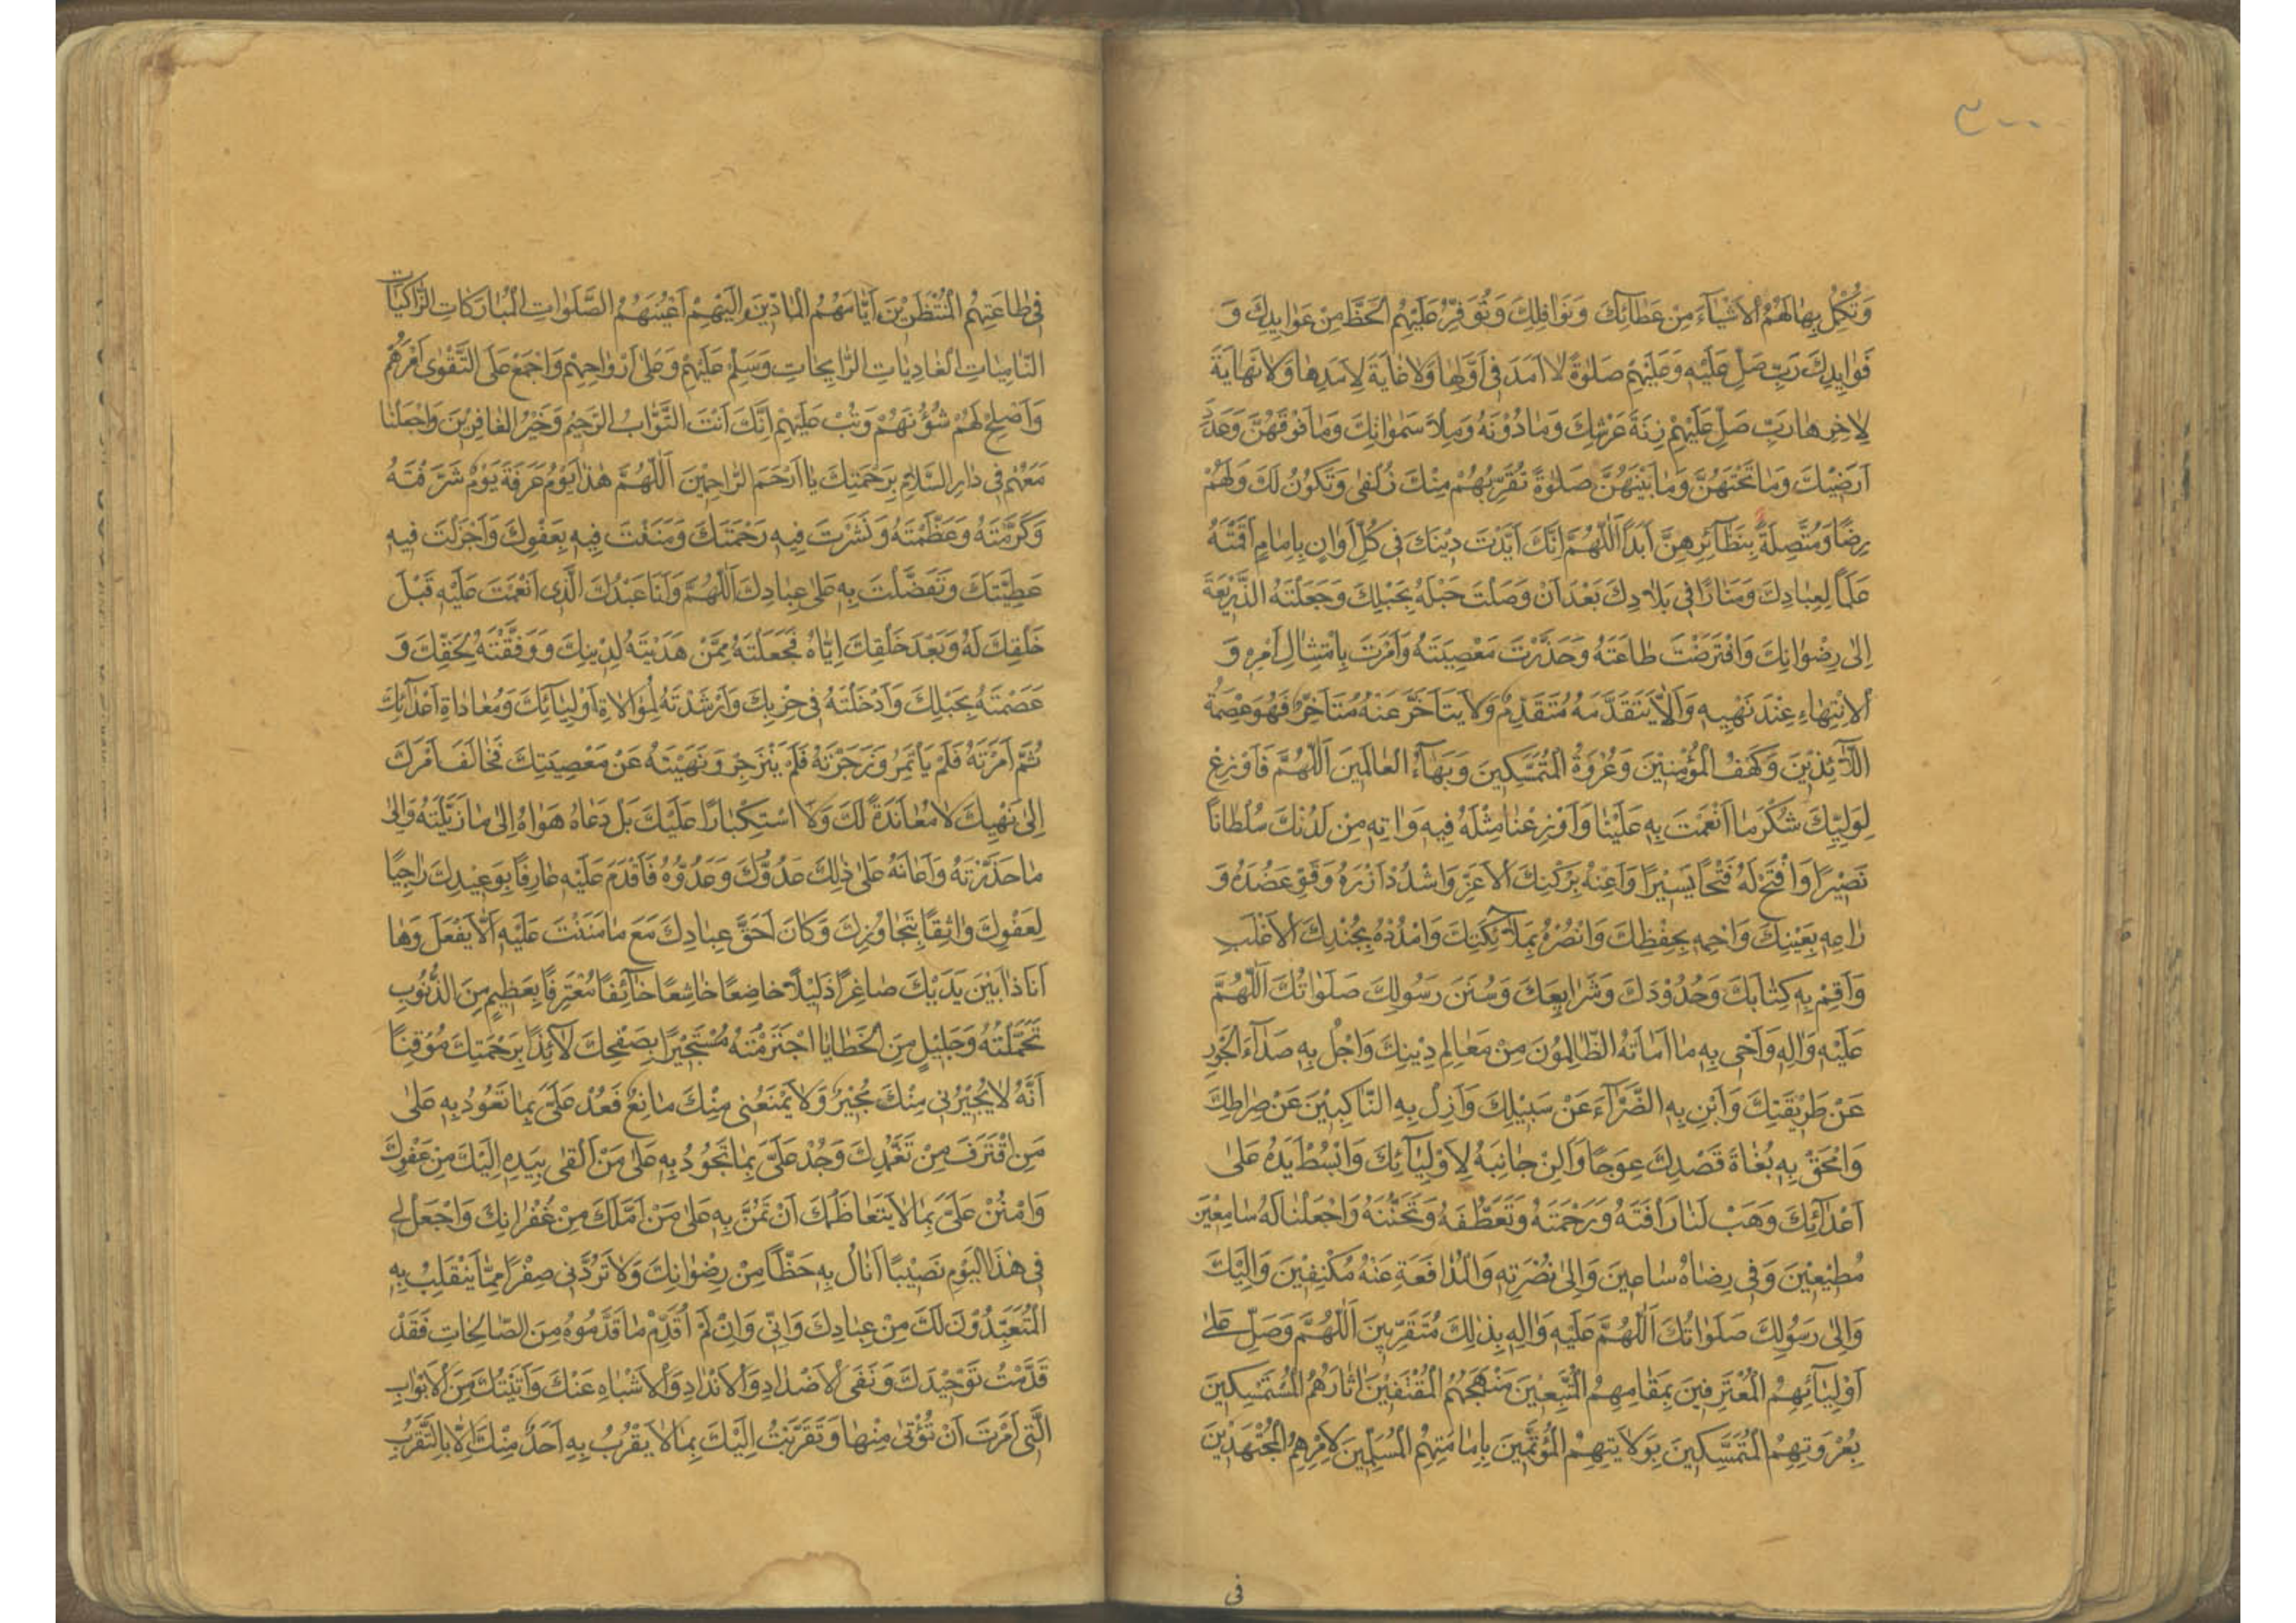 ٣٠٠
وَتُكْمِلُ بِهَا لَهُمُ الْأَشْيَاءَ مِنْ عَطَائِكَ وَنَوَافِلِكَ وَتُوَفِّرُ عَلَيْهِمُ الْحَظَّ مِنْ عَوَايِدِكَ وَ
فَوَايِدِكَ رَبِّ صَلِّ عَلَيْهِ وَعَلَيْهِمْ صَلٰوةً لَا اَمَدَ فِي اَوَّلِهَا وَلَا غَايَةَ لِاَمَدِهَا وَلَا نِهَايَةَ
لِاٰخِرِهَا رَبِّ صَلِّ عَلَيْهِمْ زِنَةَ عَرْشِكَ وَمَا دُوْنَهُ وَمِلْاَ سَمٰوَاتِكَ وَمَا فَوْقَهُنَّ وَعَدَدَ
اَرَضِيْكَ وَمَا تَحْتَهُنَّ وَمَا بَيْنَهُنَّ صَلٰوةً تُقَرِّبُهُمْ مِنْكَ زُلْفٰى وَتَكُوْنُ لَكَ وَلَهُمْ
رِضًا وَمُتَّصِلَةً بِنَظَآئِرِهِنَّ اَبَدًا اَللّٰهُمَّ اِنَّكَ اَيَّدْتَ دِيْنَكَ فِي كُلِّ اَوَانٍ بِاِمَامٍ اَقَمْتَهُ
عَلَمًا لِعِبَادِكَ وَمَنَارًا فِي بِلَادِكَ بَعْدَ اَنْ وَصَلْتَ حَبْلَهُ بِحَبْلِكَ وَجَعَلْتَهُ الذَّرِيْعَةَ
اِلٰى رِضْوَانِكَ وَافْتَرَضْتَ طَاعَتَهُ وَحَذَّرْتَ مَعْصِيَتَهُ وَاَمَرْتَ بِامْتِثَالِ اَمْرِهِ وَ
الْاِنْتِهَاءِ عِنْدَ نَهْيِهِ وَاَلَّا يَتَقَدَّمَهُ مُتَقَدِّمٌ وَلَا يَتَاَخَّرَ عَنْهُ مُتَاَخِّرٌ فَهُوَ عِصْمَةُ
اللَّآئِذِيْنَ وَكَهْفُ الْمُؤْمِنِيْنَ وَعُرْوَةُ الْمُتَمَسِّكِينَ وَبَهَآءُ الْعَالَمِينَ اَللّٰهُمَّ فَاَوْزِعْ
لِوَلِيِّكَ شُكْرَ مَا اَنْعَمْتَ بِهِ عَلَيْنَا وَاَوْزِعْنَا مِثْلَهُ فِيهِ وَاٰتِهِ مِنْ لَدُنْكَ سُلْطَانًا
نَصِيْرًا وَافْتَحْ لَهُ فَتْحًا يَسِيْرًا وَاَعِنْهُ بِرُكْنِكَ الْاَعَزِّ وَاشْدُدْ اَزْرَهُ وَقَوِّ عَضُدَهُ وَ
رَاعِهِ بِعَيْنِكَ وَاحْمِهِ بِحِفْظِكَ وَانْصُرْهُ بِمَلَآئِكَتِكَ وَامْدُدْهُ بِجُنْدِكَ الْاَغْلَبِ
وَاَقِمْ بِهِ كِتَابَكَ وَحُدُوْدَكَ وَشَرَايِعَكَ وَسُنَنَ رَسُولِكَ صَلَوَاتُكَ اَللّٰهُمَّ
عَلَيْهِ وَاٰلِهِ وَاَحْيِ بِهِ مَا اَمَاتَهُ الظَّالِمُونَ مِنْ مَعَالِمِ دِيْنِكَ وَاجْلُ بِهِ صَدَآءَ الْجَوْرِ
عَنْ طَرِيْقَتِكَ وَاَبِنْ بِهِ الضَّرَّآءَ عَنْ سَبِيْلِكَ وَاَزِلْ بِهِ النَّاكِبِيْنَ عَنْ صِرَاطِكَ
وَامْحَقْ بِهِ بُغَاةَ قَصْدِكَ عِوَجًا وَاَلِنْ جَانِبَهُ لِاَوْلِيَآئِكَ وَابْسُطْ يَدَهُ عَلٰى
اَعْدَآئِكَ وَهَبْ لَنَا رَاْفَتَهُ وَرَحْمَتَهُ وَتَعَطُّفَهُ وَتَحَنُّنَهُ وَاجْعَلْنَا لَهُ سَامِعِيْنَ
مُطِيْعِيْنَ وَفِي رِضَاهُ سَاعِينَ وَاِلٰى نُصْرَتِهِ وَالْمُدَافَعَةِ عَنْهُ مُكْنِفِيْنَ وَاِلَيْكَ
وَاِلٰى رَسُوْلِكَ صَلَوَاتُكَ اَللّٰهُمَّ عَلَيْهِ وَاٰلِهِ بِذٰلِكَ مُتَقَرِّبِينَ اَللّٰهُمَّ وَصَلِّ عَلٰى
اَوْلِيَآئِهِمُ الْمُعْتَرِفِينَ بِمَقَامِهِمُ الْمُتَّبِعِيْنَ مَنْهَجَهُمُ الْمُقْتَفِيْنَ اٰثَارَهُمُ الْمُسْتَمْسِكِينَ
بِعُرْوَتِهِمُ الْمُتَمَسِّكِينَ بِوَلَايَتِهِمُ الْمُؤْتَمِّينَ بِاِمَامَتِهِمُ الْمُسَلِّمِينَ لِاَمْرِهِمُ الْمُجْتَهِدِيْنَ
فى
فِي طَاعَتِهِمُ الْمُنْتَظِرِيْنَ اَيَّامَهُمُ الْمَادِّيْنَ اِلَيْهِمْ اَعْيُنَهُمُ الصَّلَوَاتِ الْمُبَارَكَاتِ الزَّاكِيَاتِ
النَّامِيَاتِ الْغَادِيَاتِ الرَّايِحَاتِ وَسَلِّمْ عَلَيْهِمْ وَعَلٰى اَرْوَاحِهِمْ وَاجْمَعْ عَلَى التَّقْوٰى اَمْرَهُمْ
وَاَصْلِحْ لَهُمْ شُؤُنَهُمْ وَتُبْ عَلَيْهِمْ اِنَّكَ اَنْتَ التَّوَّابُ الرَّحِيْمُ وَخَيْرُ الْغَافِرِيْنَ وَاجْعَلْنَا
مَعَهُمْ فِي دَارِ السَّلَامِ بِرَحْمَتِكَ يَا اَرْحَمَ الرَّاحِمِيْنَ اَللّٰهُمَّ هٰذَا يَوْمُ عَرَفَةَ يَوْمٌ شَرَّفْتَهُ
وَكَرَّمْتَهُ وَعَظَّمْتَهُ وَنَشَرْتَ فِيهِ رَحْمَتَكَ وَمَنَنْتَ فِيهِ بِعَفْوِكَ وَاَجْزَلْتَ فِيهِ
عَطِيَّتَكَ وَتَفَضَّلْتَ بِهِ عَلٰى عِبَادِكَ اَللّٰهُمَّ وَاَنَا عَبْدُكَ الَّذِي اَنْعَمْتَ عَلَيْهِ قَبْلَ
خَلْقِكَ لَهُ وَبَعْدَ خَلْقِكَ اِيَّاهُ فَجَعَلْتَهُ مِمَّنْ هَدَيْتَهُ لِدِيْنِكَ وَوَفَّقْتَهُ لِحَقِّكَ وَ
عَصَمْتَهُ بِحَبْلِكَ وَاَدْخَلْتَهُ فِي حِزْبِكَ وَاَرْشَدْتَهُ لِمُوَالَاةِ اَوْلِيَآئِكَ وَمُعَادَاةِ اَعْدَآئِكَ
ثُمَّ اَمَرْتَهُ فَلَمْ يَاْتَمِرْ وَزَجَرْتَهُ فَلَمْ يَنْزَجِرْ وَنَهَيْتَهُ عَنْ مَعْصِيَتِكَ فَخَالَفَ اَمْرَكَ
اِلٰى نَهْيِكَ لَا مُعَانَدَةً لَكَ وَلَا اسْتِكْبَارًا عَلَيْكَ بَلْ دَعَاهُ هَوَاهُ اِلٰى مَا زَيَّلْتَهُ وَاِلٰى
مَا حَذَّرْتَهُ وَاَعَانَهُ عَلٰى ذٰلِكَ عَدُوُّكَ وَعَدُوُّهُ فَاَقْدَمَ عَلَيْهِ عَارِفًا بِوَعِيْدِكَ رَاجِيًا
لِعَفْوِكَ وَاثِقًا بِتَجَاوُزِكَ وَكَانَ اَحَقَّ عِبَادِكَ مَعَ مَا مَنَنْتَ عَلَيْهِ اَلَّا يَفْعَلَ وَهَا
اَنَا ذَا بَيْنَ يَدَيْكَ صَاغِرًا ذَلِيْلًا خَاضِعًا خَاشِعًا خَآئِفًا مُعْتَرِفًا بِعَظِيْمٍ مِنَ الذُّنُوْبِ
تَحَمَّلْتُهُ وَجَلِيْلٍ مِنَ الْخَطَايَا اجْتَرَمْتُهُ مُسْتَجِيْرًا بِصَفْحِكَ لَآئِذًا بِرَحْمَتِكَ مُوْقِنًا
اَنَّهُ لَا يُجِيْرُنِي مِنْكَ مُجِيْرٌ وَلَا يَمْنَعُنِي مِنْكَ مَانِعٌ فَعُدْ عَلَيَّ بِمَا تَعُوْدُ بِهِ عَلٰى
مَنِ اقْتَرَفَ مِنْ تَغَمُّدِكَ وَجُدْ عَلَيَّ بِمَا تَجُوْدُ بِهِ عَلٰى مَنْ اَلْقٰى بِيَدِهِ اِلَيْكَ مِنْ عَفْوِكَ
وَامْنُنْ عَلَيَّ بِمَا لَا يَتَعَاظَمُكَ اَنْ تَمُنَّ بِهِ عَلٰى مَنْ اَمَّلَكَ مِنْ غُفْرَانِكَ وَاجْعَلْ لِي
فِي هٰذَا الْيَوْمِ نَصِيْبًا اَنَالُ بِهِ حَظًّا مِنْ رِضْوَانِكَ وَلَا تَرُدَّنِي صِفْرًا مِمَّا يَنْقَلِبُ بِهِ
الْمُتَعَبِّدُوْنَ لَكَ مِنْ عِبَادِكَ وَاِنِّي وَاِنْ لَمْ اُقَدِّمْ مَا قَدَّمُوْهُ مِنَ الصَّالِحَاتِ فَقَدْ
قَدَّمْتُ تَوْحِيْدَكَ وَنَفْيَ الْاَضْدَادِ وَالْاَنْدَادِ وَالْاَشْبَاهِ عَنْكَ وَاَتَيْتُكَ مِنَ الْاَبْوَابِ
الَّتِي اَمَرْتَ اَنْ تُؤْتٰى مِنْهَا وَتَقَرَّبْتُ اِلَيْكَ بِمَا لَا يَقْرُبُ بِهِ اَحَدٌ مِنْكَ اِلَّا بِالتَّقَرُّبِ